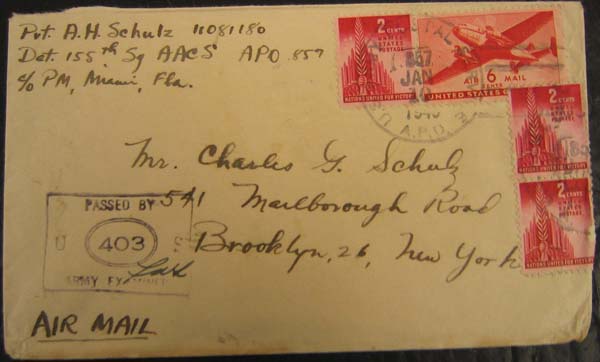 Pvt. A. H. Schulz 11081180
Det. 155th Sq AACS APO 857
c/o PM, Miami, Fla.
2 CENTS
UNITED
STATES
POSTAGE
NATIONS UNITED FOR VICTORY
AIR 6 MAIL
CENTS
UNITED STATES
857
JAN
10
A.P.O.
2 CENTS
NATIONS UNITED FOR VICTORY
2 CENTS
NATIONS UNITED FOR VICTORY
Mr. Charles G. Schulz
541 Marlborough Road
Brooklyn, 26, New York
PASSED BY
U 403 S
ARMY EXAMINER
AIR MAIL